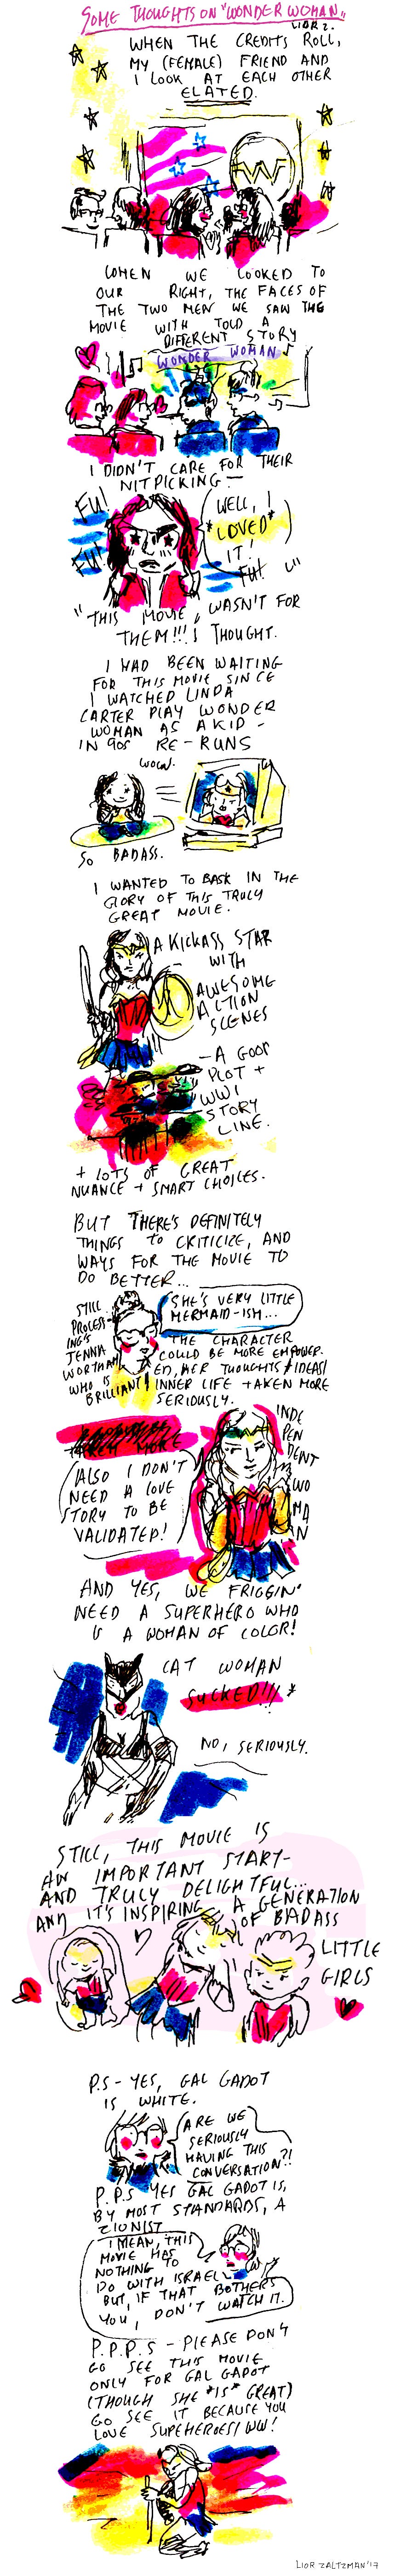 SOME THOUGHTS ON "WONDER WOMAN"
LIOR Z.
WHEN THE CREDITS ROLL,
MY (FEMALE) FRIEND AND
I LOOK AT EACH OTHER
ELATED.
W
WHEN WE LOOKED TO
OUR RIGHT, THE FACES OF
THE TWO MEN WE SAW THE
MOVIE WITH TOLD A
DIFFERENT STORY
WONDER WOMAN
I DIDN'T CARE FOR THEIR
NITPICKING -
FU!
FU!
WELL, I
*LOVED*
IT!
FU!
"THIS MOVIE, WASN'T FOR
THEM!!! I THOUGHT.
I HAD BEEN WAITING
FOR THIS MOVIE SINCE
I WATCHED LINDA
CARTER PLAY WONDER
WOMAN AS A KID -
IN 90s RE-RUNS
WOW.
SO BADASS.
I WANTED TO BASK IN THE
GLORY OF THIS TRULY
GREAT MOVIE.
A KICKASS STAR
WITH
AWESOME
ACTION
SCENES
- A GOOD
PLOT +
WWI
STORY
LINE.
+ LOTS OF GREAT
NUANCE + SMART CHOICES.
BUT THERE'S DEFINITELY
THINGS TO CRITICIZE, AND
WAYS FOR THE MOVIE TO
DO BETTER...
STILL
PROCESS-
ING'S
JENNA
WORTHAM
WHO IS
BRILLIANT!
SHE'S VERY LITTLE
MERMAID-ISH...
THE CHARACTER
COULD BE MORE EMPOWER-
ED, HER THOUGHTS + IDEAS/
INNER LIFE TAKEN MORE
SERIOUSLY.
ALSO I DON'T
NEED A LOVE
STORY TO BE
VALIDATED!
INDE
PEN
DENT
WO
MA
N
AND YES, WE FRIGGIN'
NEED A SUPERHERO WHO
IS A WOMAN OF COLOR!
CAT WOMAN
SUCKED!!! *
NO, SERIOUSLY.
STILL, THIS MOVIE IS
AN IMPORTANT START-
AND TRULY DELIGHTFUL...
AND IT'S INSPIRING A GENERATION
OF BADASS
LITTLE
GIRLS
P.S - YES, GAL GADOT
IS WHITE.
ARE WE
SERIOUSLY
HAVING THIS
CONVERSATION?!
P.P.S YES GAL GADOT IS,
BY MOST STANDARDS, A
ZIONIST
I MEAN, THIS
MOVIE HAS
NOTHING TO
DO WITH ISRAEL
BUT, IF THAT BOTHERS
YOU, DON'T WATCH IT.
P.P.P.S - PLEASE DON'T
GO SEE THIS MOVIE
ONLY FOR GAL GADOT
(THOUGH SHE *IS* GREAT)
GO SEE IT BECAUSE YOU
LOVE SUPERHEROES/WW!
LIOR ZALTZMAN '17